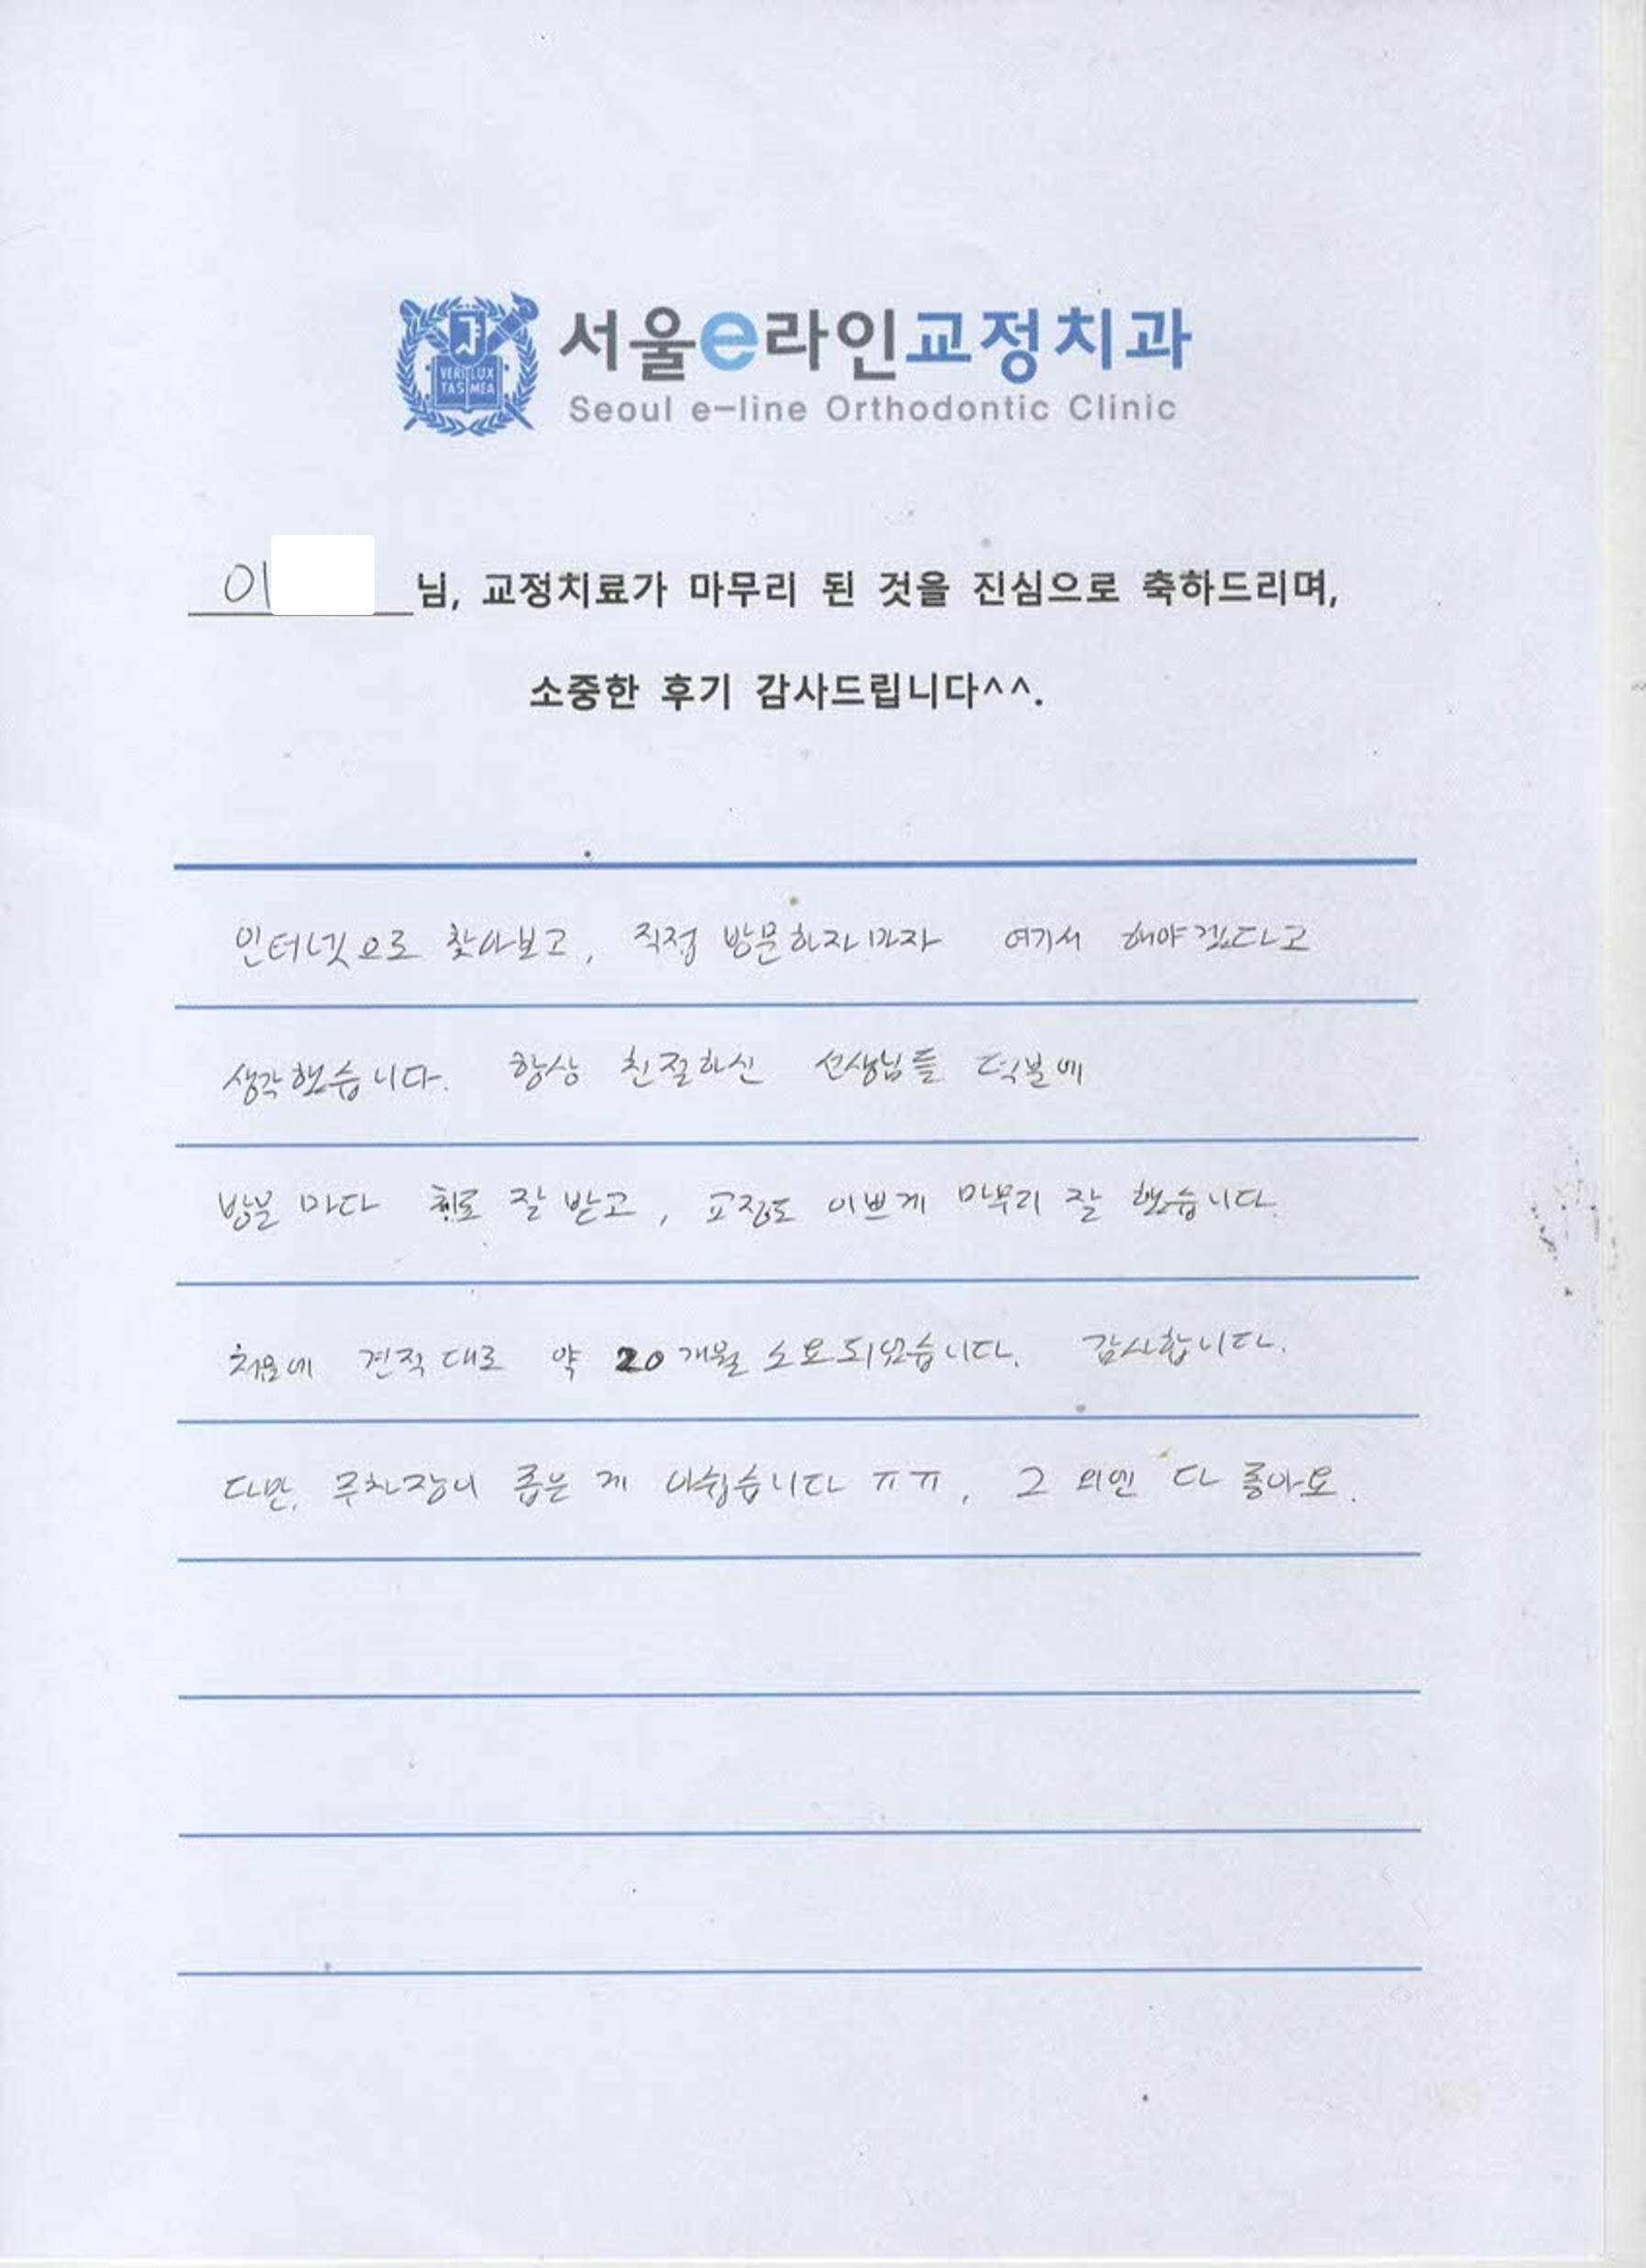 서울e라인교정치과
Seoul e-line Orthodontic Clinic
VERI LUX
TAS MEA
이 님, 교정치료가 마무리 된 것을 진심으로 축하드리며,
소중한 후기 감사드립니다^^.
인터넷으로 찾아보고, 직접 방문하자마자 여기서 해야겠다고
생각했습니다. 항상 친절하신 선생님들 덕분에
방문 마다 치료 잘 받고, 교정도 이쁘게 마무리 잘 했습니다.
처음에 견적대로 약 20개월 소요되었습니다. 감사합니다.
다만, 주차장이 좁은 게 아쉽습니다 ㅠㅠ, 그 외엔 다 좋아요.